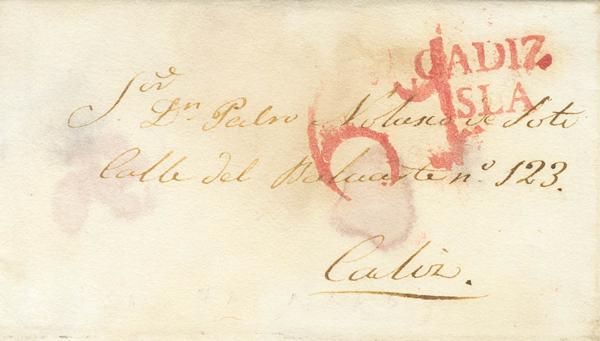 CADIZ
ISLA
6
Sor
Dn Pedro Nolasco de Soto
Calle del Baluarte nº 123.
Cadiz.